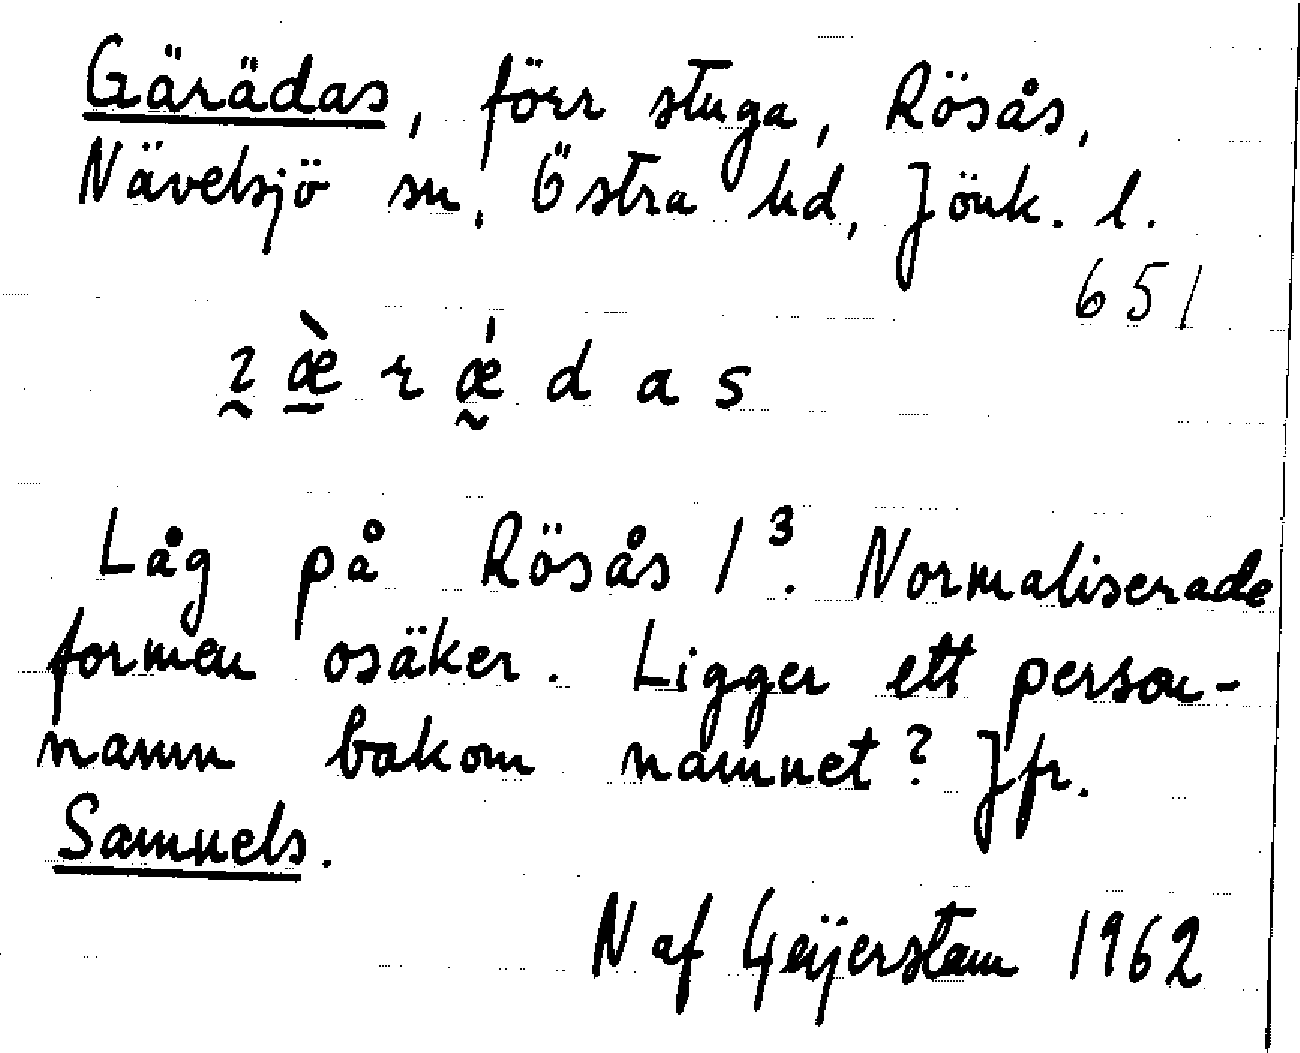 Gärädas, förr stuga, Rösås,
Nävelsjö sn, Östra hd, Jönk. l.
651
œ̀ r œ́ d a s
Låg på Rösås 1³. Normaliserade
formen osäker. Ligger ett person-
namn bakom namnet? Jfr.
Samuels.
N af Geijerstam 1962